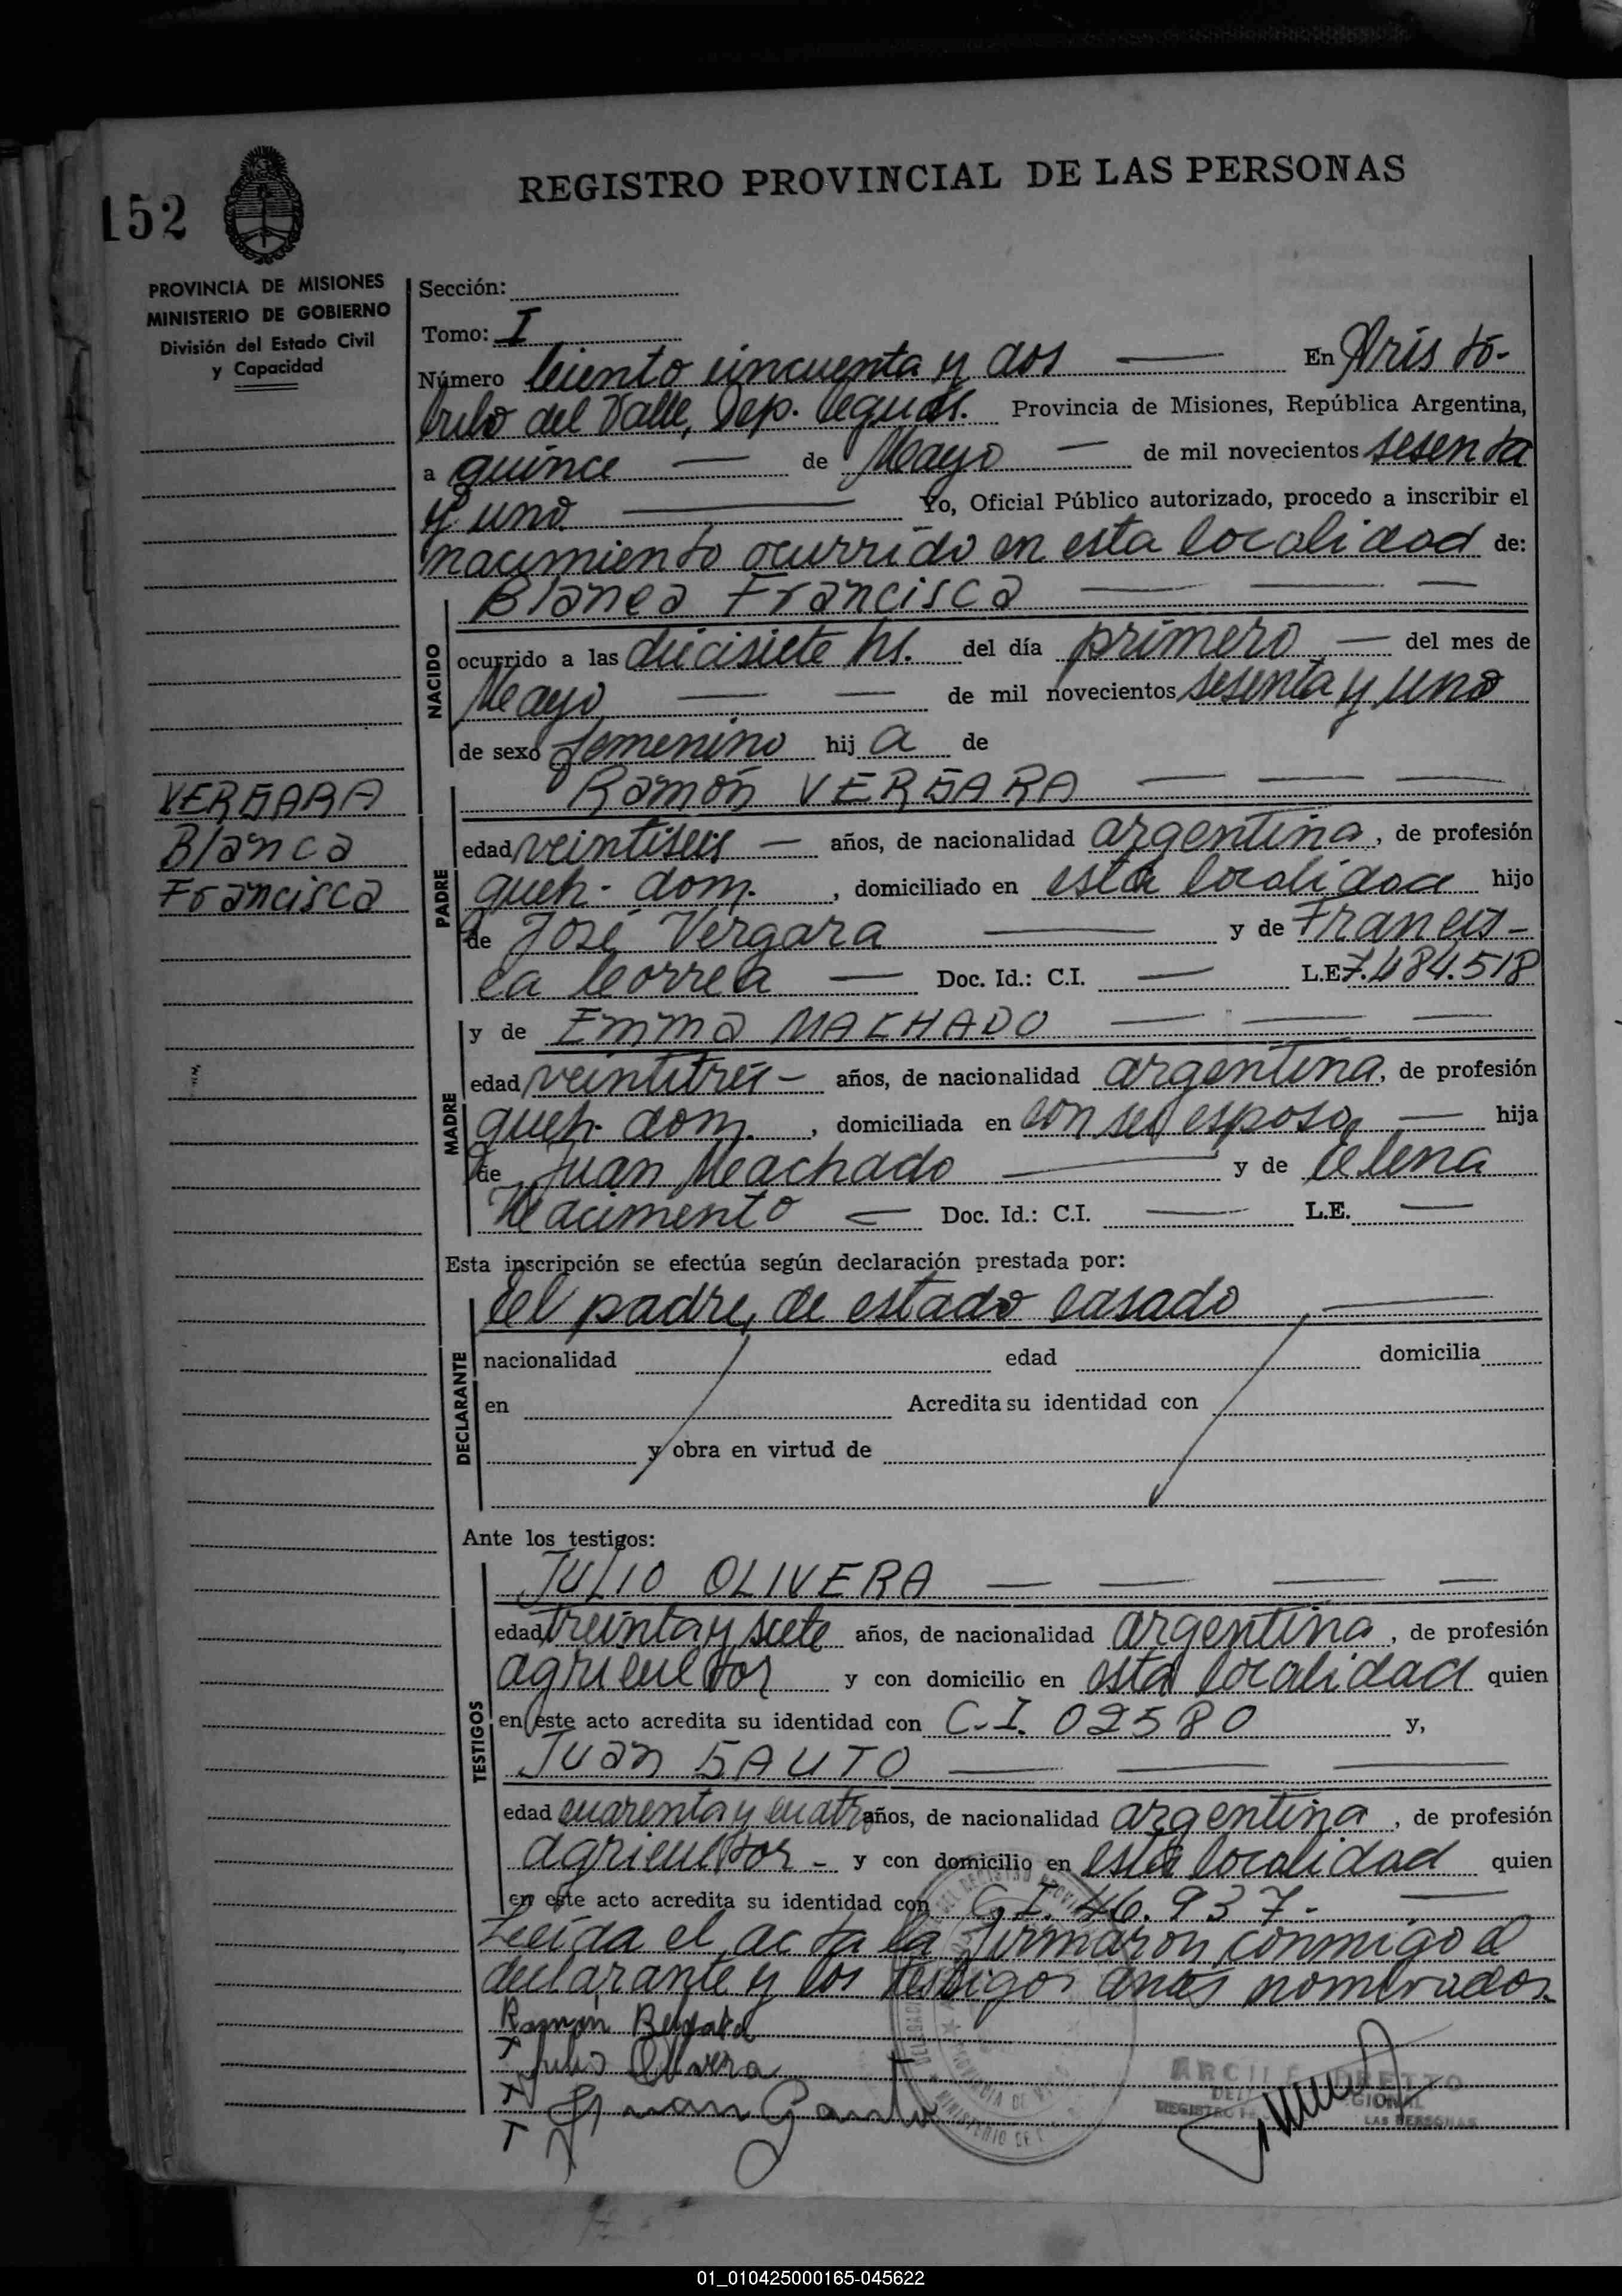 REGISTRO PROVINCIAL DE LAS PERSONAS
152
PROVINCIA DE MISIONES
MINISTERIO DE GOBIERNO
División del Estado Civil
y Capacidad
Sección:
Tomo: I
Número Ciento cincuenta y dos — En Aristó-
bulo del Valle, Dep. Cguás. Provincia de Misiones, República Argentina,
a quince — de Mayo — de mil novecientos sesenta
y uno — Yo, Oficial Público autorizado, procedo a inscribir el
nacimiento ocurrido en esta localidad de:
NACIDO
Blanca Francisca — — —
ocurrido a las diecisiete hs. del día primero — del mes de
Mayo — — de mil novecientos sesenta y uno
de sexo femenino hij a de
VERGARA
Blanca
Francisca
PADRE
Ramón VERGARA — — —
edad veintiseis — años, de nacionalidad argentina, de profesión
queh. dom. , domiciliado en esta localidad hijo
de José Vergara — y de Francis-
ca Correa — Doc. Id.: C.I. — L.E. 7.484.518
MADRE
y de Emma MACHADO — — —
edad veintitrés — años, de nacionalidad argentina, de profesión
queh. dom. , domiciliada en con su esposo, — hija
de Juan Machado — y de Elena
Nacimento — Doc. Id.: C.I. — L.E. —
Esta inscripción se efectúa según declaración prestada por:
DECLARANTE
El padre, de estado casado —
nacionalidad edad domicilia
en Acredita su identidad con
y obra en virtud de
Ante los testigos:
TESTIGOS
Julio OLIVERA — — — —
edad treinta y siete años, de nacionalidad argentina, de profesión
agricultor y con domicilio en esta localidad quien
en este acto acredita su identidad con C.I. 02580 y,
Juan GAUTO — — —
edad cuarenta y cuatro años, de nacionalidad argentina, de profesión
agricultor - y con domicilio en esta localidad quien
en este acto acredita su identidad con C.I. 46.937.- —
Leída el acta la firmaron conmigo el
declarante y los testigos antes nombrados.
Ramón
Julio Olivera
Juan Gauto
LAS PERSONAS
01_010425000165-045622